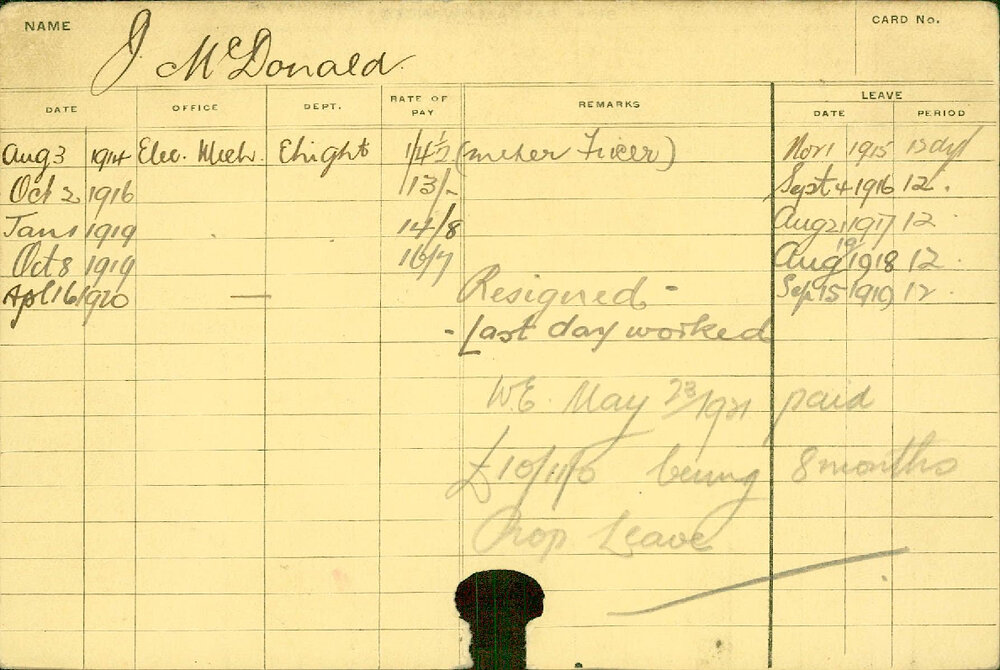 NAME
J. McDonald
CARD No.
DATE OFFICE DEPT. RATE OF PAY REMARKS LEAVE
DATE PERIOD
Aug 3 1914 Elec. Mech. Elight 1/4½ (meter Fixer) Nov 1 1915 12 dy
Oct 2 1916 13/- Sept 4 1916 12.
Jan 1 1919 14/8 Aug 21 1917 12
Oct 8 1919 16/7 Aug 19 1918 12.
Apl 16 1920 — Resigned - Sep 15 1919 12
- Last day worked
W.E. May 23/1921 paid
£10/11/0 being 8 months
Prop Leave